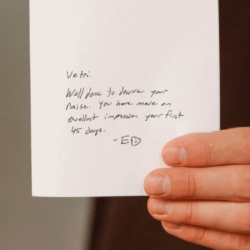 Vetri.
Well done to deserve your
raise. You have made an
excellent impression your first
45 days.